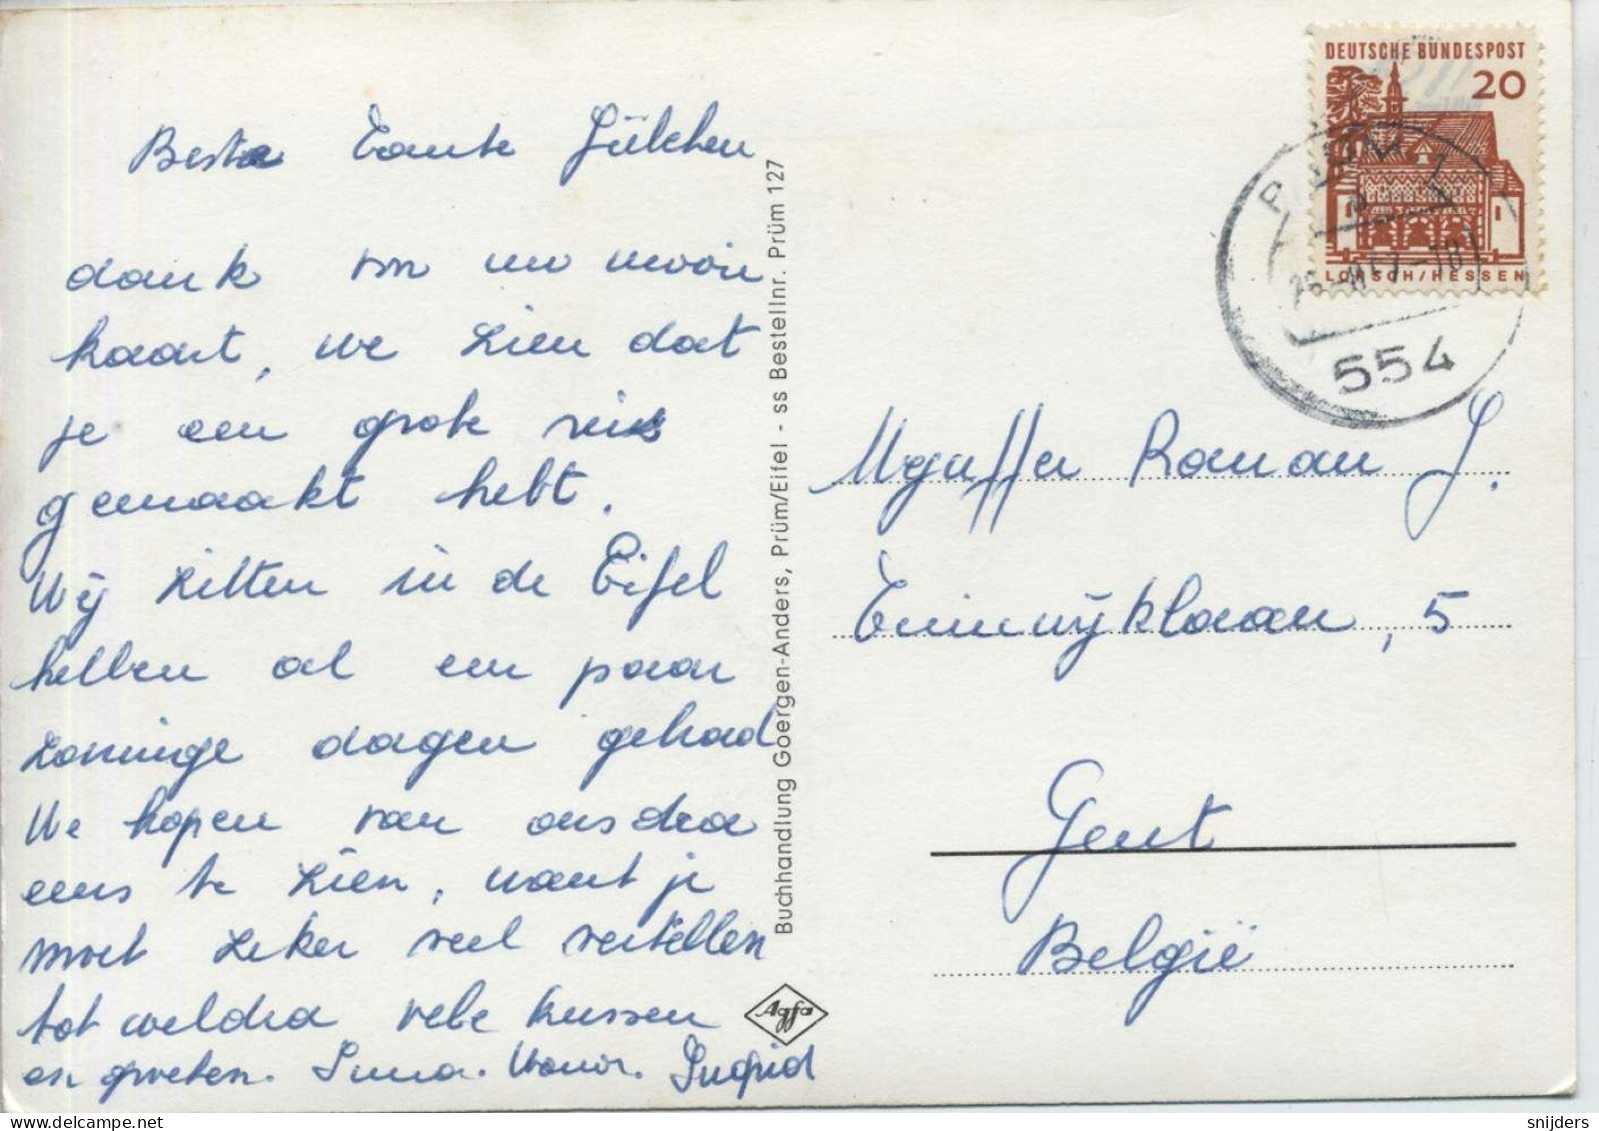 Beste Tante Jülchen
dank von uw mooie
kaart, we zien dat
je een grote reis
gemaakt hebt.
Wij zitten in de Eifel
hebben al een paar
zonnige dagen gehad
We hopen van ons dra
eens te zien, want je
moet zeker veel vertellen
tot weldra vele kussen
en groeten. Irma. Ingrid
Buchhandlung Goergen-Anders, Prüm/Eifel - ss Bestellnr. Prüm 127
Agfa
DEUTSCHE BUNDESPOST
20
LORSCH/HESSEN
554
Mejuffer Raman J.
5
Gent
België
snijders